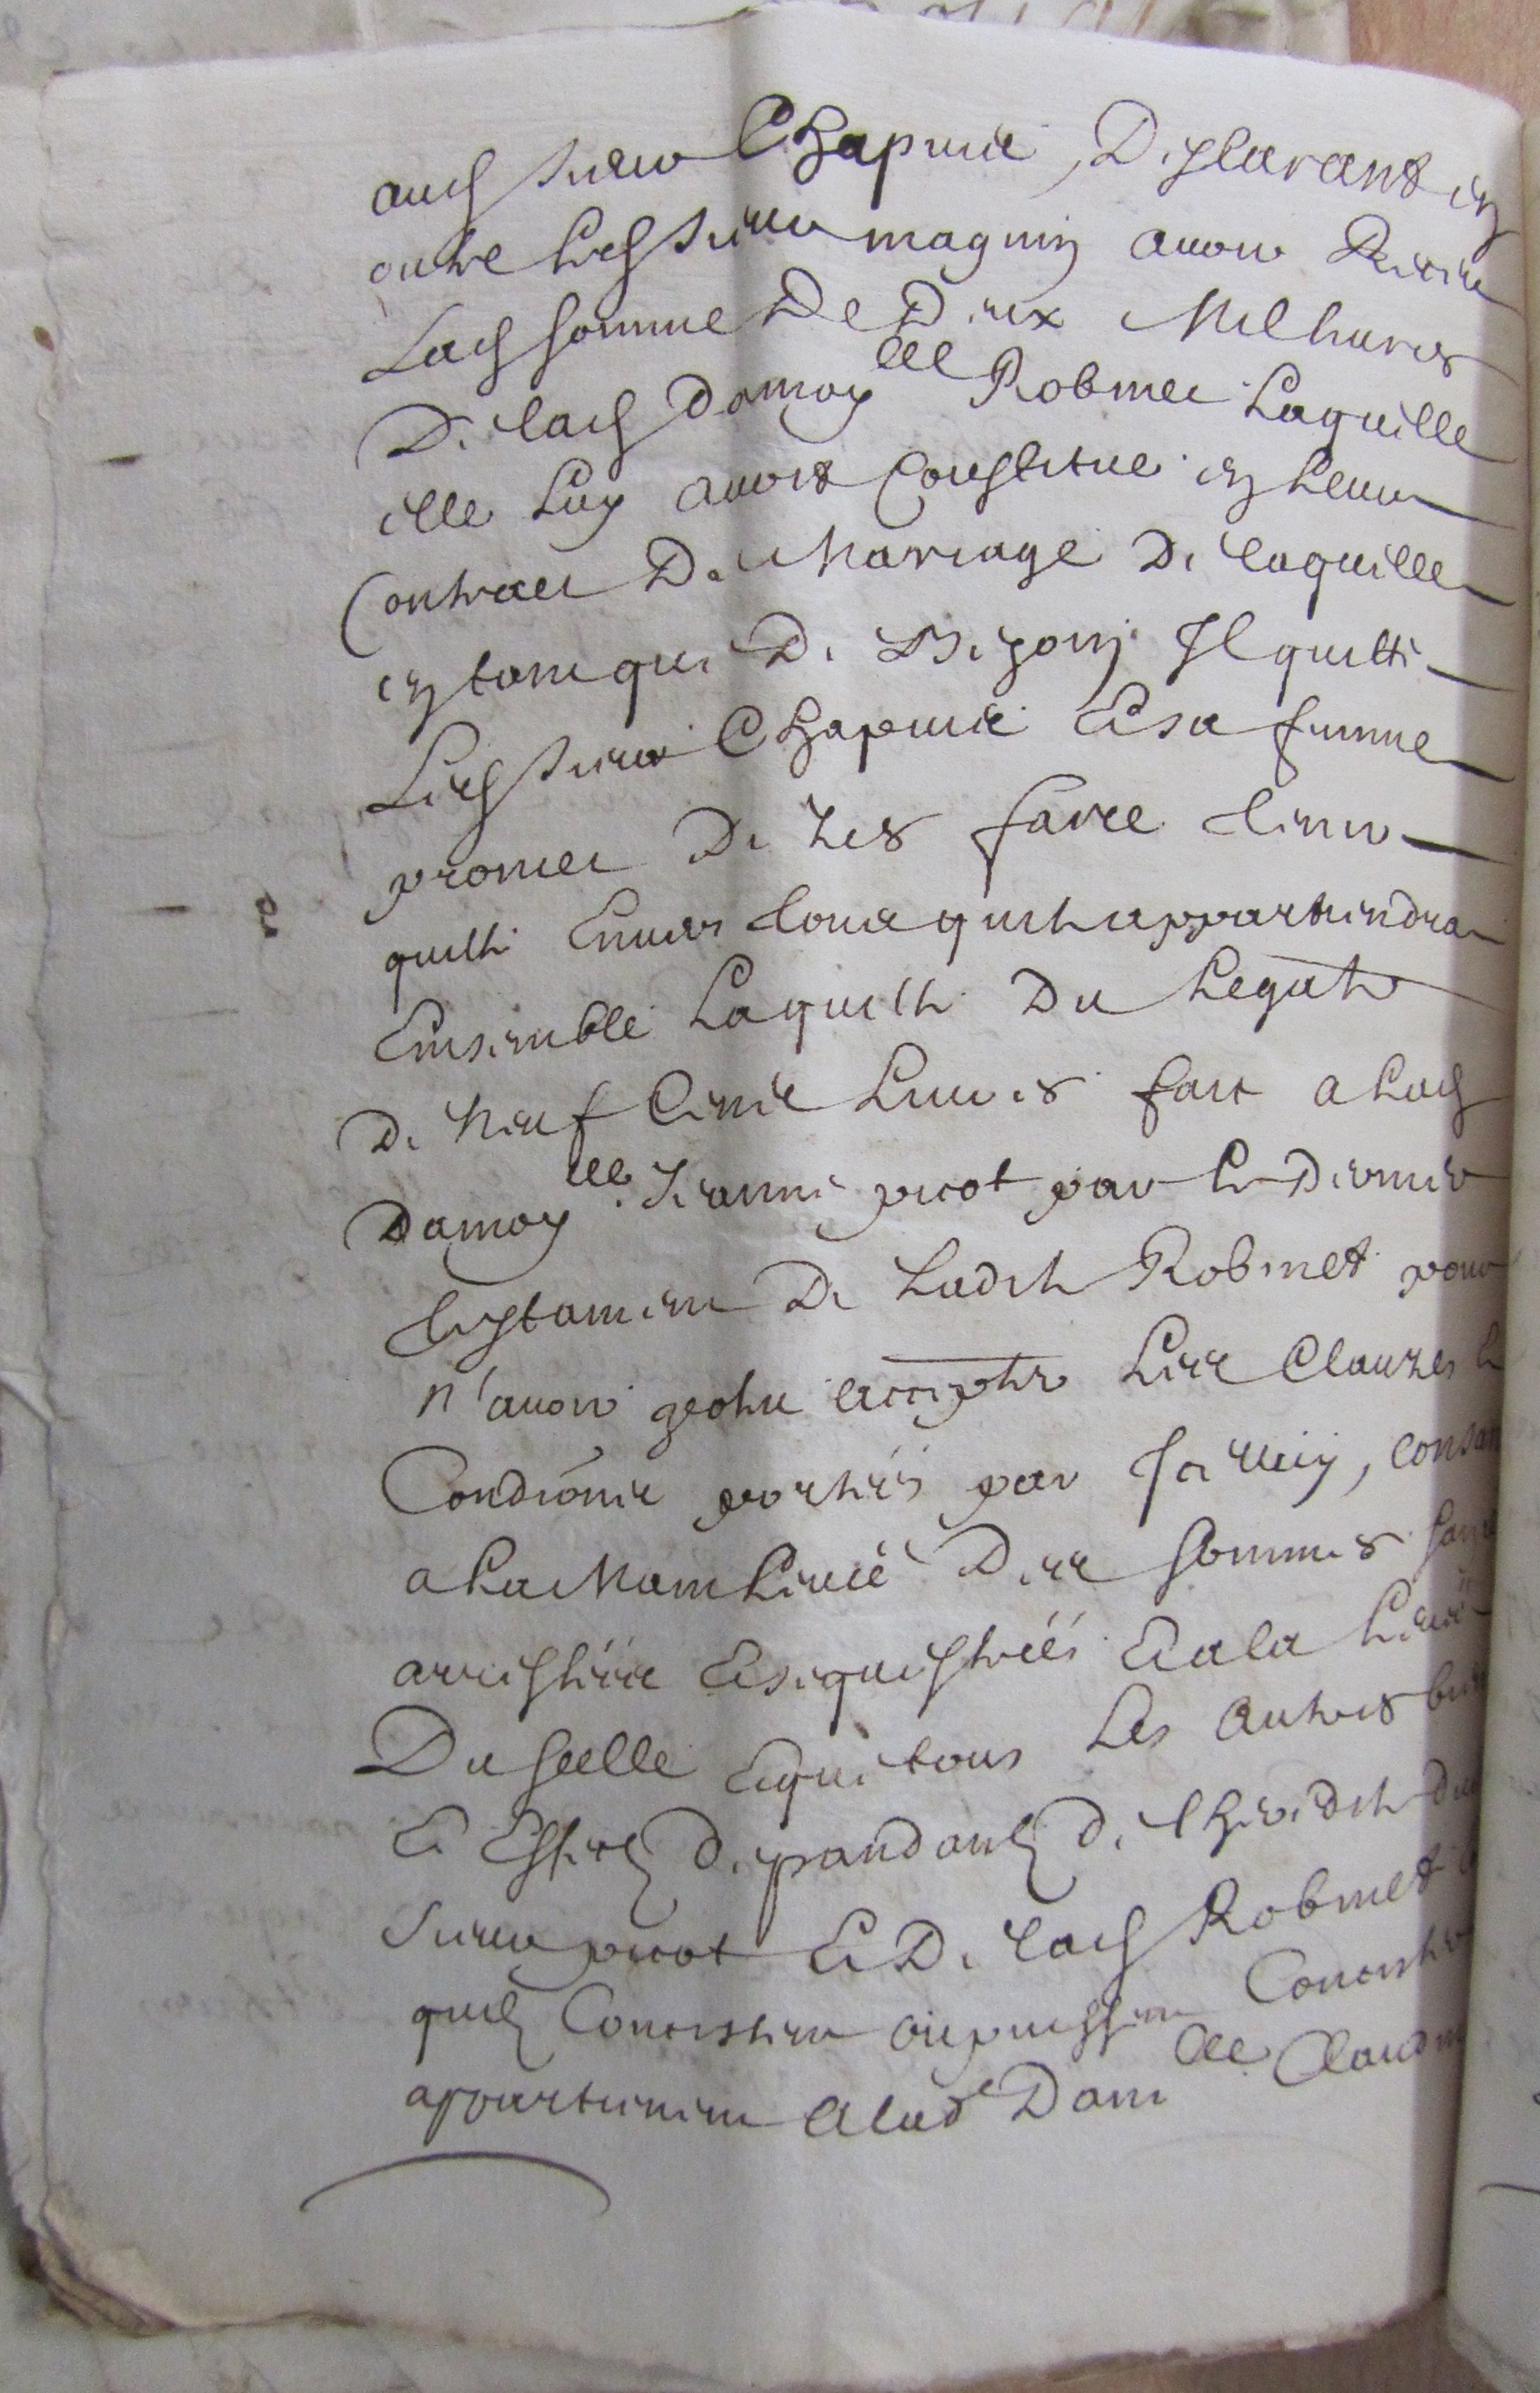 aud sieur Chapuis, Desclarant en
outre led sieur magnin avoir Receu
Lad somme De Deux Mil livres
De lad Damoy^lle Robinet Laquelle
elle luy avoit Constitue en leur
Contract De Mariage De laquelle
en tant que De Besoing Il quitte
Lesd sieur Chapuis et sa femme
promet De les faire tenir
quitte Envers tous quil appartiendra
Ensemble Laquitte Du Legat
De neuf Cent Livres fait a lad
Damoy^lle Jeanne picot par le Dernier
testament De ladite Robinet pour
n'avoir peolu accepter Les Clauses et
Conditions portées par Iceluy, consan
a la Main Levée Des sommes
arrestées et sequestrées Et a la Levée
Du scelle et que tous Les autres
et Effects dependants de l'hoirie dudit
sieur picot Et De lad Robinet
quels Concistent ou puissent Concister
appartienent a lad^e Dam^lle